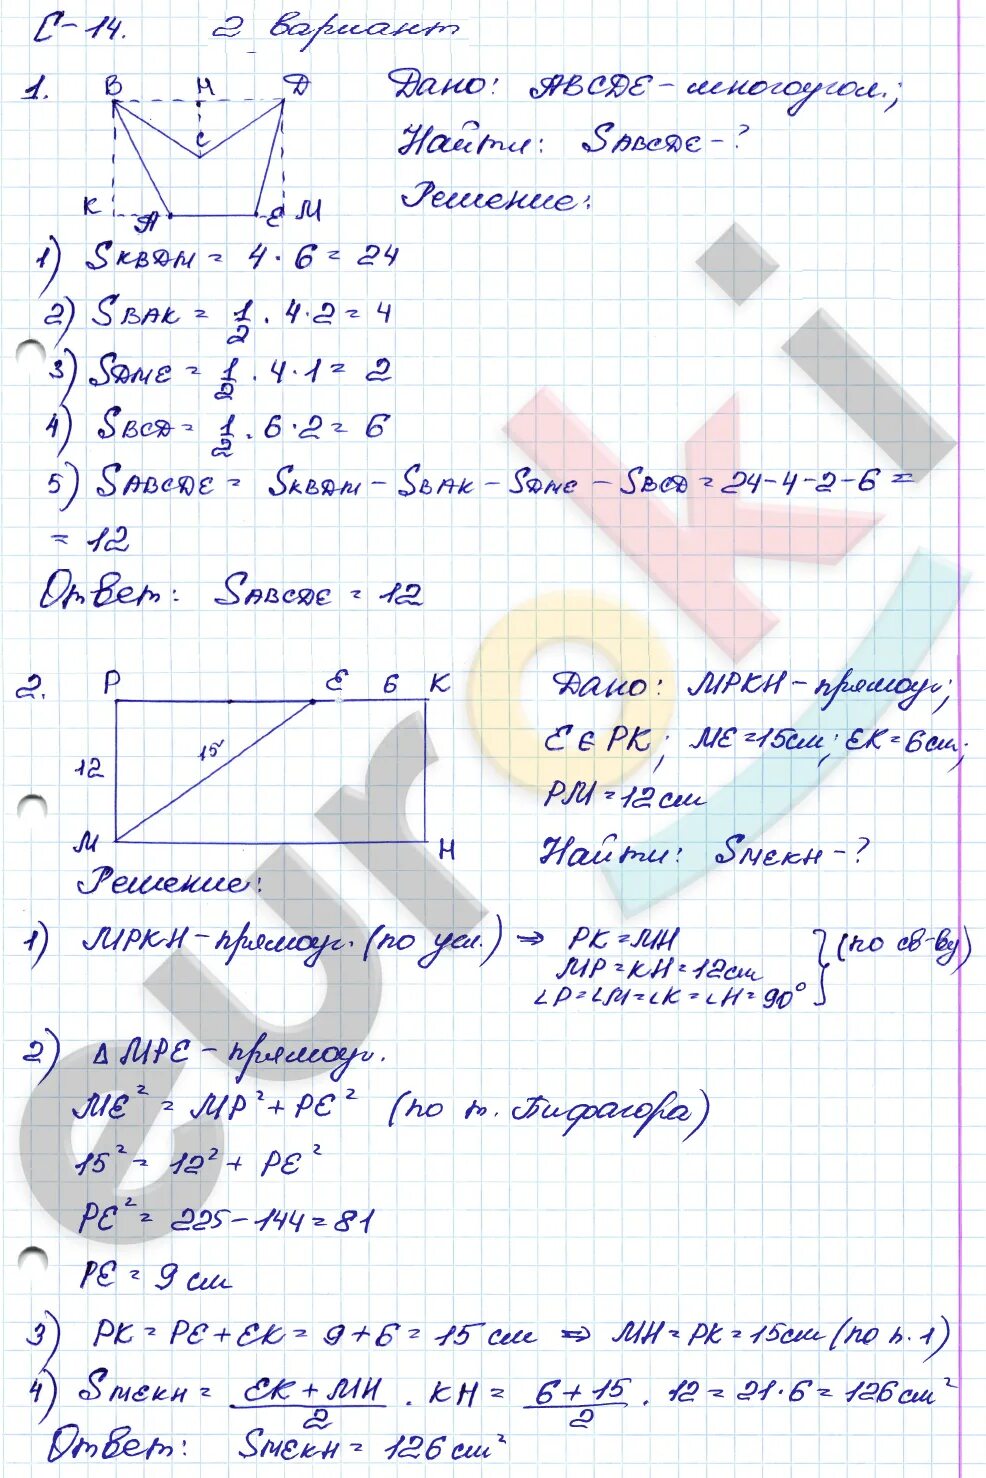 С-14. 2 вариант
1. B H D Дано: ABCDE - многоугол.;
C Найти: SABCDE - ?
K A E M Решение:
1) SKBDM = 4 · 6 = 24
2) SBAK = 1/2 · 4 · 2 = 4
3) SDME = 1/2 · 4 · 1 = 2
4) SBCD = 1/2 · 6 · 2 = 6
5) SABCDE = SKBDM - SBAK - SDME - SBCD = 24 - 4 - 2 - 6 =
= 12
Ответ: SABCDE = 12
2. P E 6 K Дано: MPKH - прямоуг.;
15 E ∈ PK; ME = 15см; EK = 6см;
12 PM = 12 см
M H Найти: SMEKH - ?
Решение:
1) MPKH - прямоуг. (по усл.) ⇒ PK = MH
MP = KH = 12см } (по св-ву)
∠P = ∠M = ∠K = ∠H = 90°
2) Δ MPE - прямоуг.
ME² = MP² + PE² (по т. Пифагора)
15² = 12² + PE²
PE² = 225 - 144 = 81
PE = 9 см
3) PK = PE + EK = 9 + 6 = 15 см ⇒ MH = PK = 15см (по п. 1)
4) SMEKH = EK + MH / 2 · KH = 6 + 15 / 2 · 12 = 21 · 6 = 126 см²
Ответ: SMEKH = 126 см²
euroki